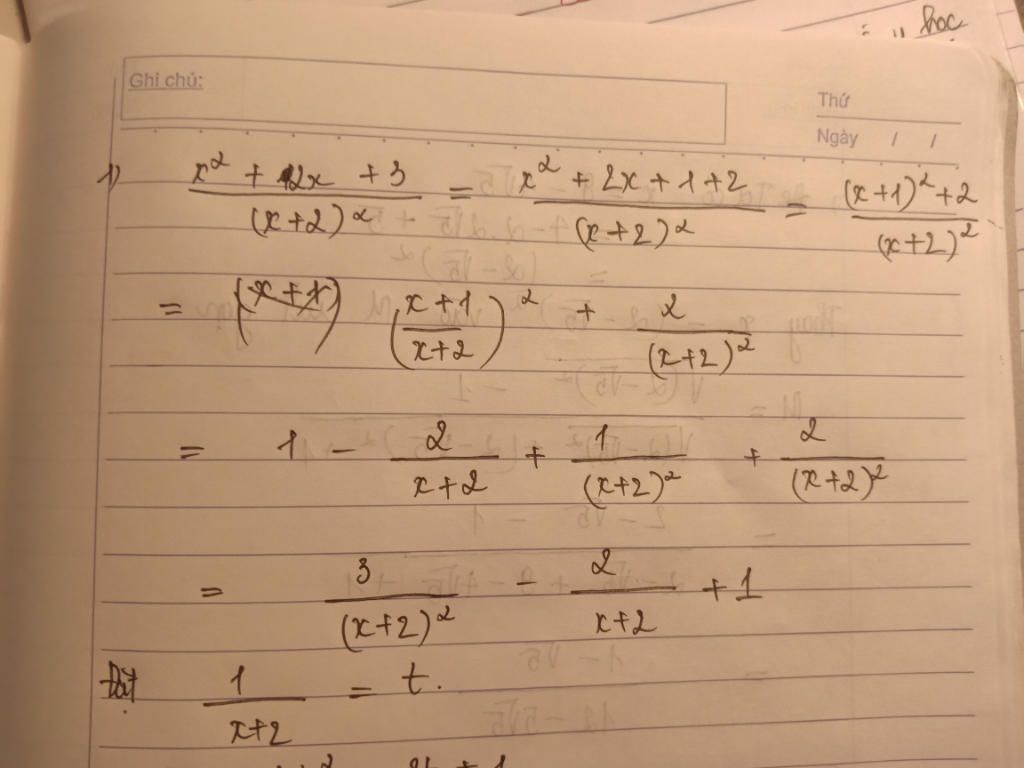 học
Ghi chú:
Thứ
Ngày / /
1) (x² + 2x + 3)/(x+2)² = (x² + 2x + 1 + 2)/(x+2)² = ((x+1)² + 2)/(x+2)²
= ((x+1)/(x+2))² + 2/(x+2)²
= 1 - 2/(x+2) + 1/(x+2)² + 2/(x+2)²
= 3/(x+2)² - 2/(x+2) + 1
Đặt 1/(x+2) = t.